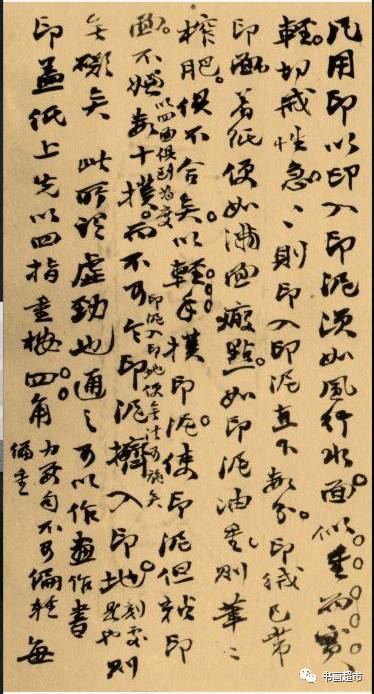 凡用印以印入印泥須如風行水面。似重而實
輕。切戒性急。〻則印入印泥直下數分。印絨已帶
印面。着紙便如滿面瘢點。如印泥油重。則筆〻
榨肥。俱不合矣。以輕手撲印泥。使印泥但粘印
面。不嫌數十撲。以四面俱到為度而不可令印泥擠入印地。刻處是也印泥入印地便無法可施矣則
無礙矣此所謂虛勁也通之可以作畫作書
印蓋紙上先以四指重按四角。力要勻不可偏輕偏重每
书画超市